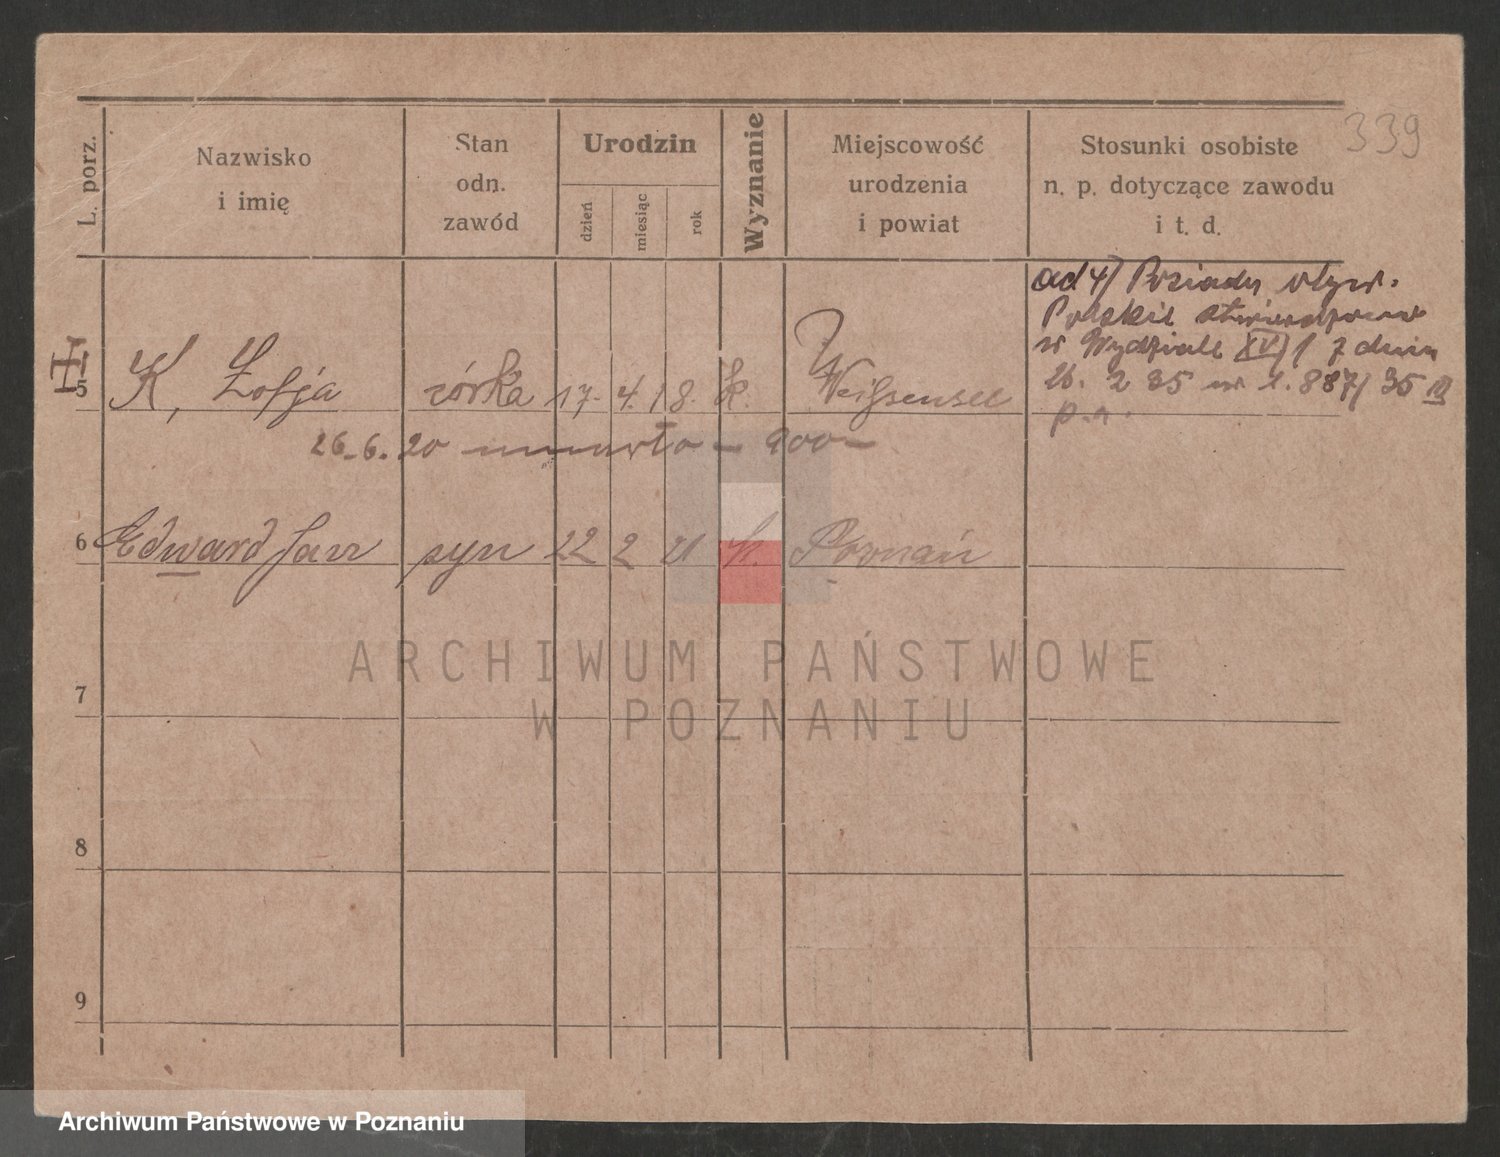 339
L. porz.
Nazwisko
i imię
Stan
odn.
zawód
Urodzin
dzień
miesiąc
rok
Wyznanie
Miejscowość
urodzenia
i powiat
Stosunki osobiste
n. p. dotyczące zawodu
i t. d.
ad 4) Posiada obyw.
Polskie
w Wydziale XV/1 z dnia
26. 2 35 nr 1. 887/35
5 K, Zofja córka 17. 4. 18. k. Weißensee
26.6.20 umarła - 900 -
6 Edward Jan syn 22 2 21 k. Poznań
ARCHIWUM PAŃSTWOWE
W POZNANIU
7
8
9
Archiwum Państwowe w Poznaniu